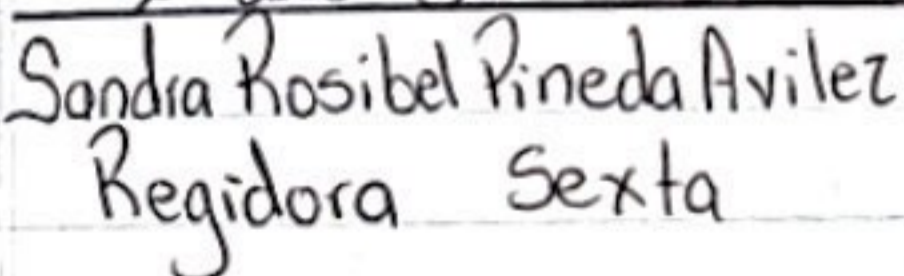 Sandra Rosibel Pineda Avilez
Regidora Sexta